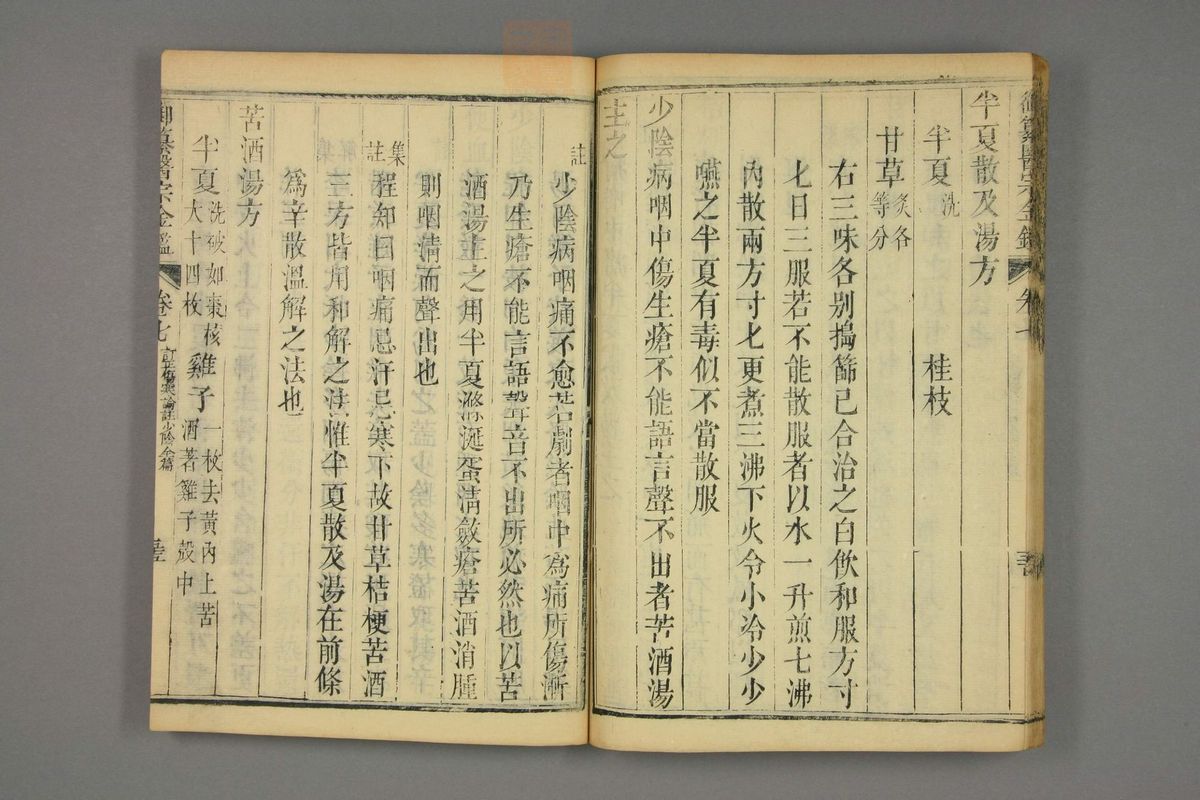 半夏散及湯方
半夏洗 桂枝
甘草炙各等分
右三味各別搗篩已合治之白飲和服方寸
匕日三服若不能散服者以水一升煎七沸
內散兩方寸匕更煮三沸下火令小冷少少
嚥之半夏有毒似不當散服
少陰病咽中傷生瘡不能語言聲不出者苦酒湯
主之
註少陰病咽痛不愈若劇者咽中為痛所傷漸
乃生瘡不能言語聲音不出所必然也以苦
酒湯主之用半夏滌涎蛋清斂瘡苦酒消腫
則咽清而聲出也
集註程知曰咽痛忌汗忌寒下故甘草桔梗苦酒
三方皆用和解之法惟半夏散及湯在前條
爲辛散溫解之法也
苦酒湯方
半夏洗破如棗核大十四枚 雞子一枚去黃內上苦酒著雞子殼中
御纂醫宗金鑑 卷七 訂正傷寒論註少陰全篇